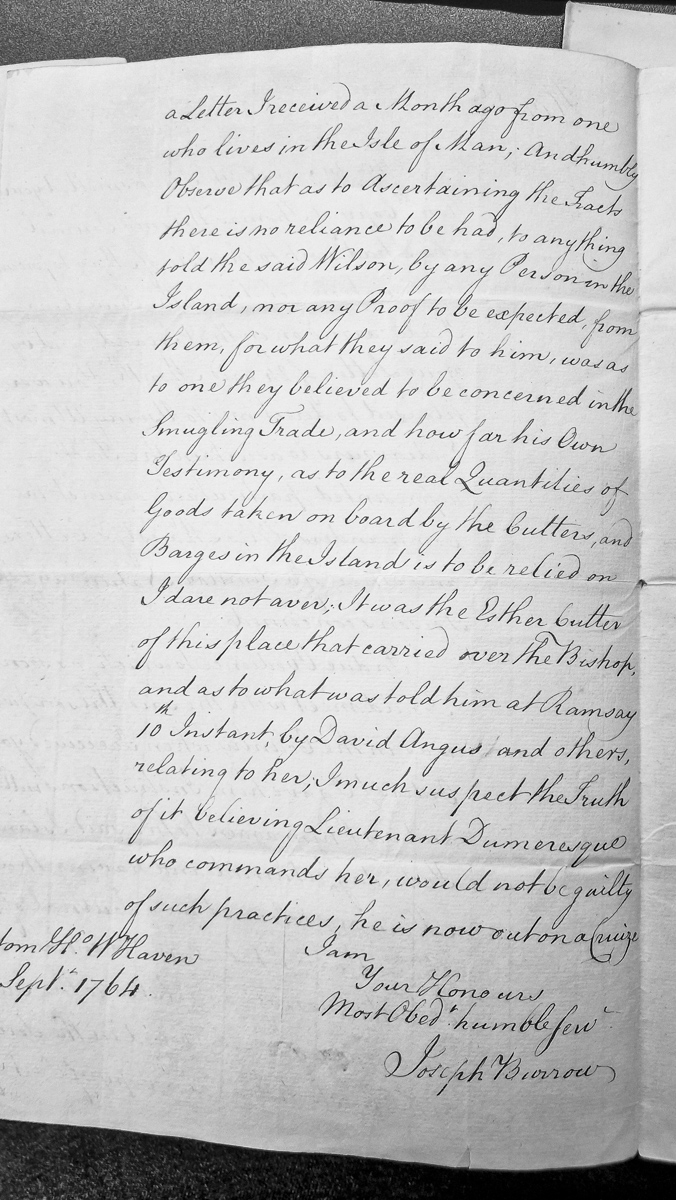 a Letter I received a Month ago from one
who lives in the Isle of Man; And humbly
Observe that as to Ascertaining the Facts
there is no reliance to be had, to any thing
told the said Wilson, by any Person in the
Island, nor any Proof to be expected, from
them, for what they said to him, was as
to one they believed to be concerned in the
Smugling Trade, and how far his Own
Testimony, as to the real Quantities of
Goods taken on board by the Cutters, and
Barges in the Island is to be relied on
I dare not aver; It was the Esther Cutter
of this place that carried over the Bishop,
and as to what was told him at Ramsay
10th Instant by David Angus and others,
relating to her; I much suspect the Truth
of it believing Lieutenant Dumeresque
who commands her, would not be guilty
of such practices, he is now out on a Cruize
tom Ho. W Haven
Septr. 1764.
I am
Your Honours
Most Obedt. humble Servt.
Joseph Burrow